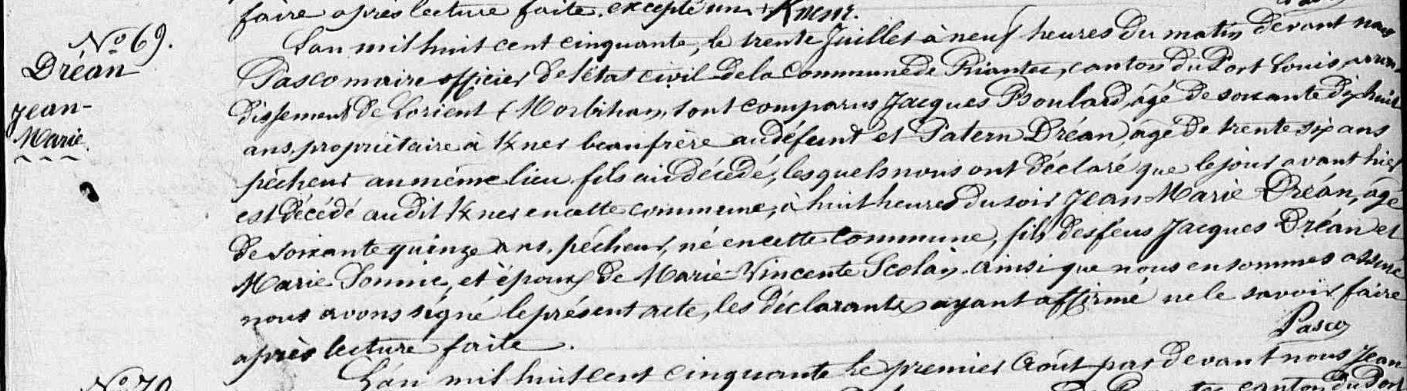 faire après lecture faite. excepté un
No 69.
Dréan
Jean-
Marie.
L'an mil huit cent cinquante, le trente Juillet à neuf heures du matin devant nous
Pasco maire officier de l'état civil de la commune de Riantec, canton du Port Louis, arron
dissement de Lorient (Morbihan) sont comparus Jacques Boulard, âgé de soixante dix huit
ans, propriétaire à Kner beaufrère au défunt et Patern Dréan, âgé de trente six ans
pêcheur au même lieu fils au décédé, lesquels nous ont déclaré que le jour avant hier
est décédé audit Kner en cette commune, à huit heures du soir Jean Marie Dréan, âgé
de soixante quinze ans, pêcheur, né en cette commune, fils des feus Jacques Dréan et
Marie Tonnic, et époux de Marie Vincente Scolan. Ainsi que nous en sommes assuré
nous avons signé le présent acte, les déclarants ayant affirmé ne le savoir faire
après lecture faite.
Pasco
No 70
L'an mil huit cent cinquante le premier Août par devant nous Jean